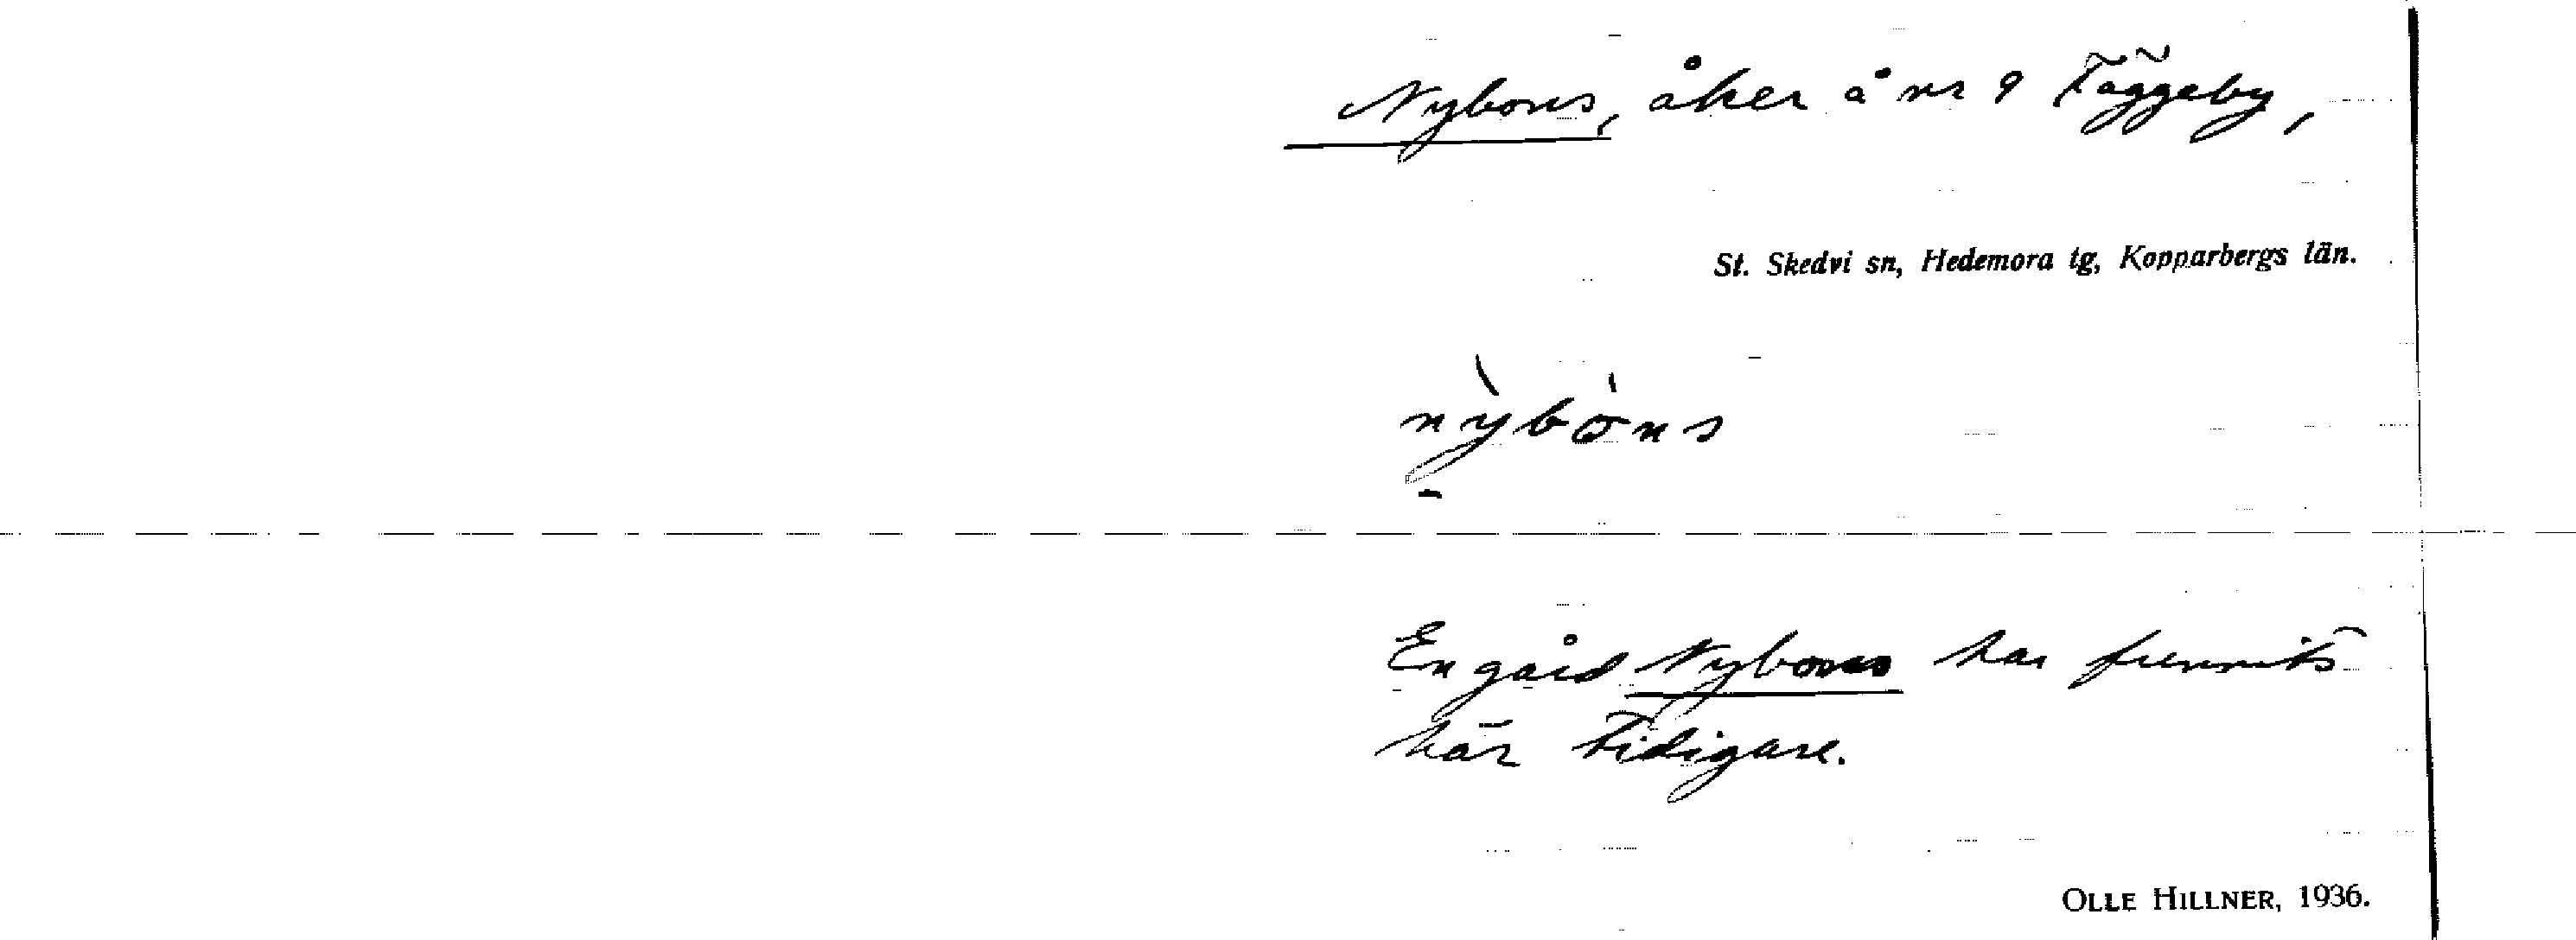 Nybons, åker å nr 9 Täggeby,
St. Skedvi sn, Hedemora tg, Kopparbergs län.
nỳbòns
En gård Nybons har funnits
här tidigare.
OLLE HILLNER, 1936.